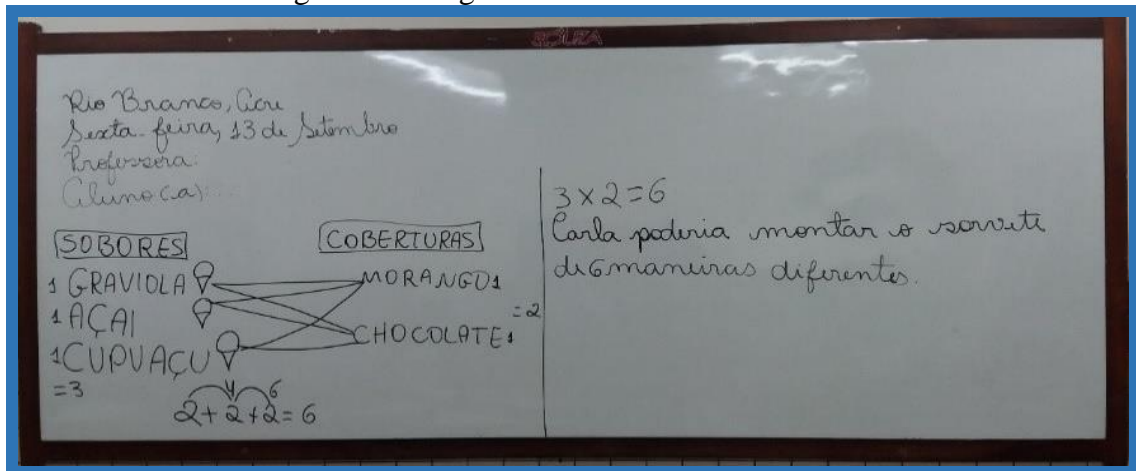 SOUZA
Rio Branco, Acre
Sexta-feira, 13 de Setembro
Professora:
Aluno(a):...
SOBORES
1 GRAVIOLA
1 AÇAI
1 CUPUAÇU
=3
COBERTURAS
MORANGO 1
CHOCOLATE 1
=2
4 6
2+2+2=6
3x2=6
Carla poderia montar o sorvete
de 6 maneiras diferentes.